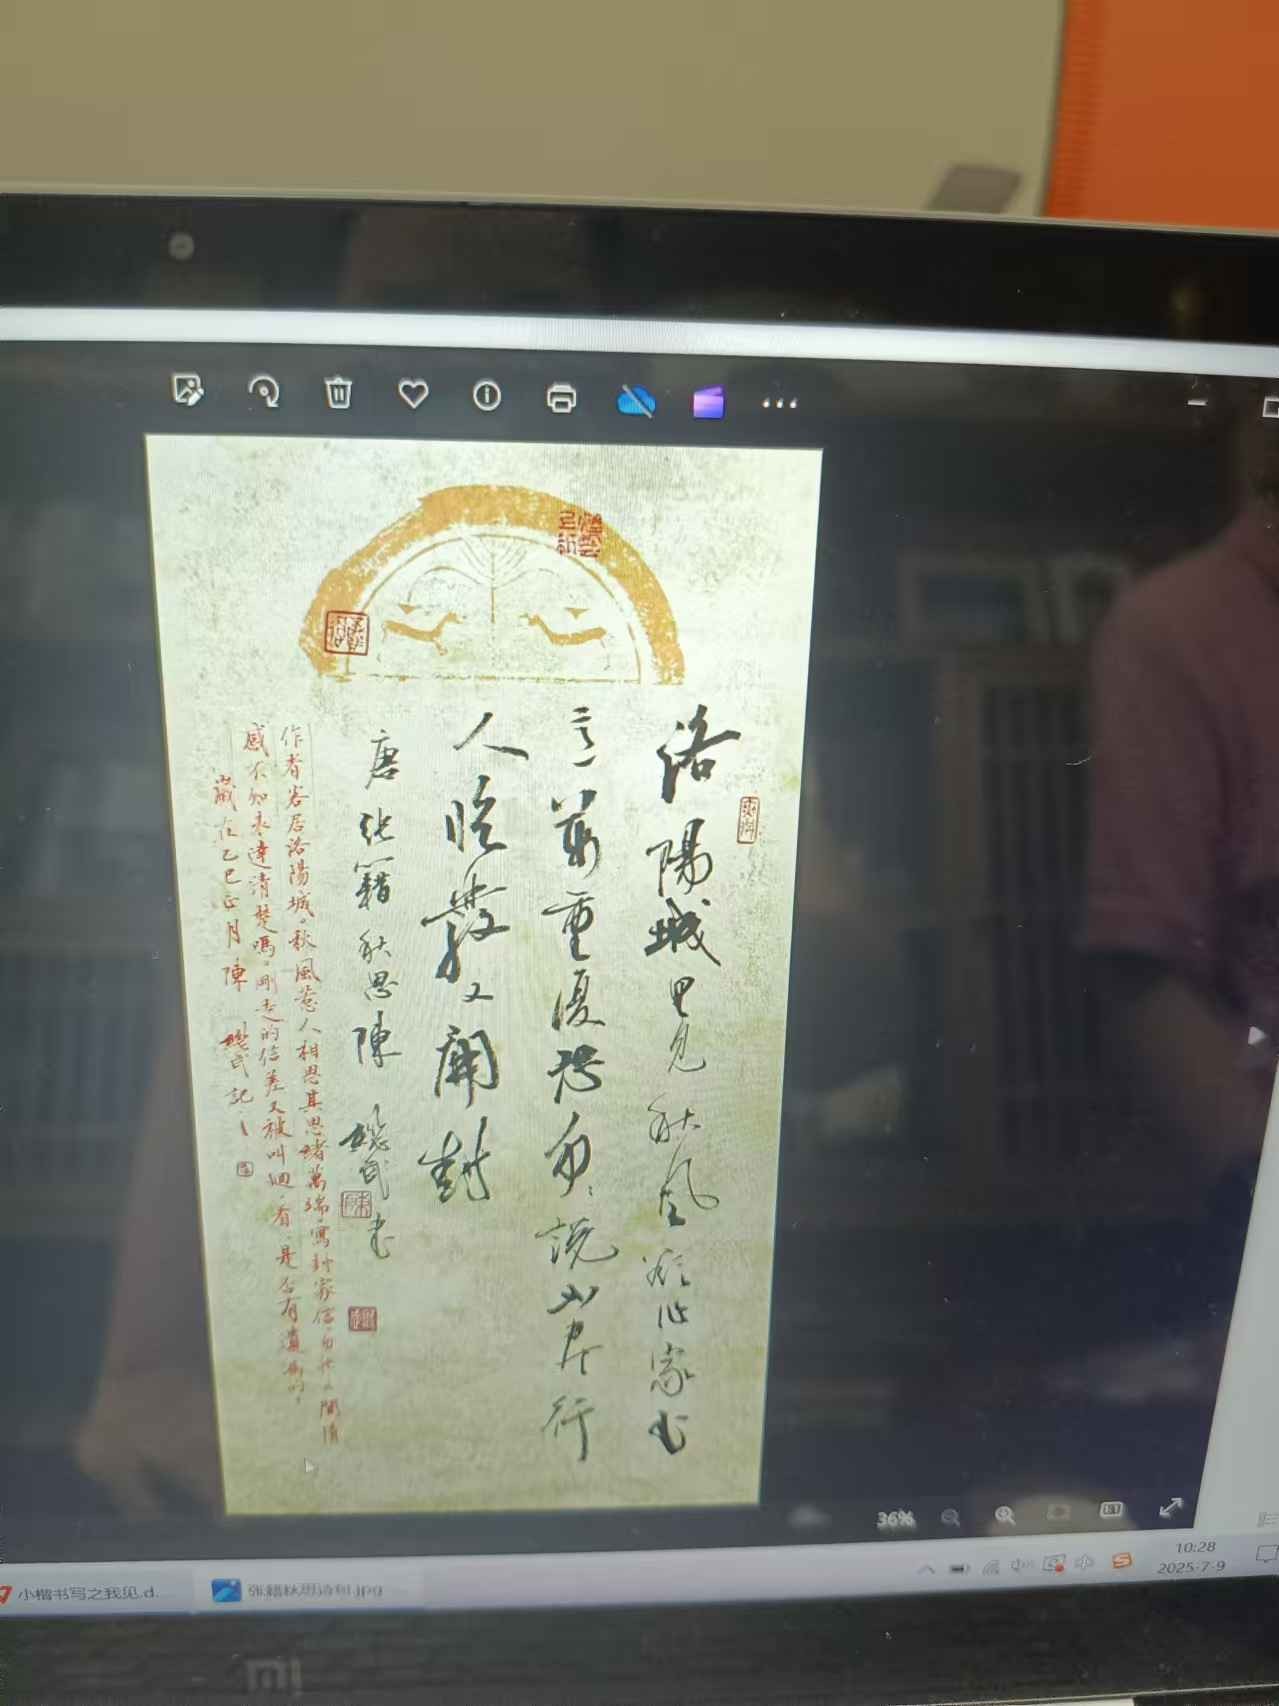 洛陽城里見秋風欲作家書
意萬重復恐匆匆說不盡行
人臨發又開封
唐張籍秋思陳 書
作者客居洛陽城。秋風惹人相思其思緒萬端。寫封家信
感不知表達清楚嗎。剛走的信差又被叫回,看是否有遺漏的。
歲在乙巳正月陳 記
36%
10:28
2025-7-9
小楷书写之我见.d...
张籍秋思诗刨.jpg
mi